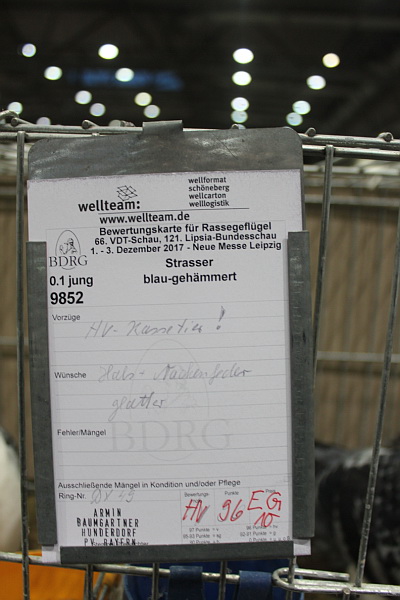 wellteam:
wellformat
schöneberg
wellcarton
welllogistik
www.wellteam.de
Bewertungskarte für Rassegeflügel
66. VDT-Schau, 121. Lipsia-Bundesschau
1. - 3. Dezember 2017 - Neue Messe Leipzig
BDRG
Strasser
blau-gehämmert
0.1 jung
9852
Vorzüge
HV-Rassetier!
Wünsche
Hals- Nackenfeder
glatter
Fehler/Mängel
BDRG
Ausschließende Mängel in Kondition und/oder Pflege
Ring-Nr.
Bewertung
Punkte
Preis
HV 96 EG
10
ARMIN
BAUMGARTNER
HUNDERDORF
PV BAYERN